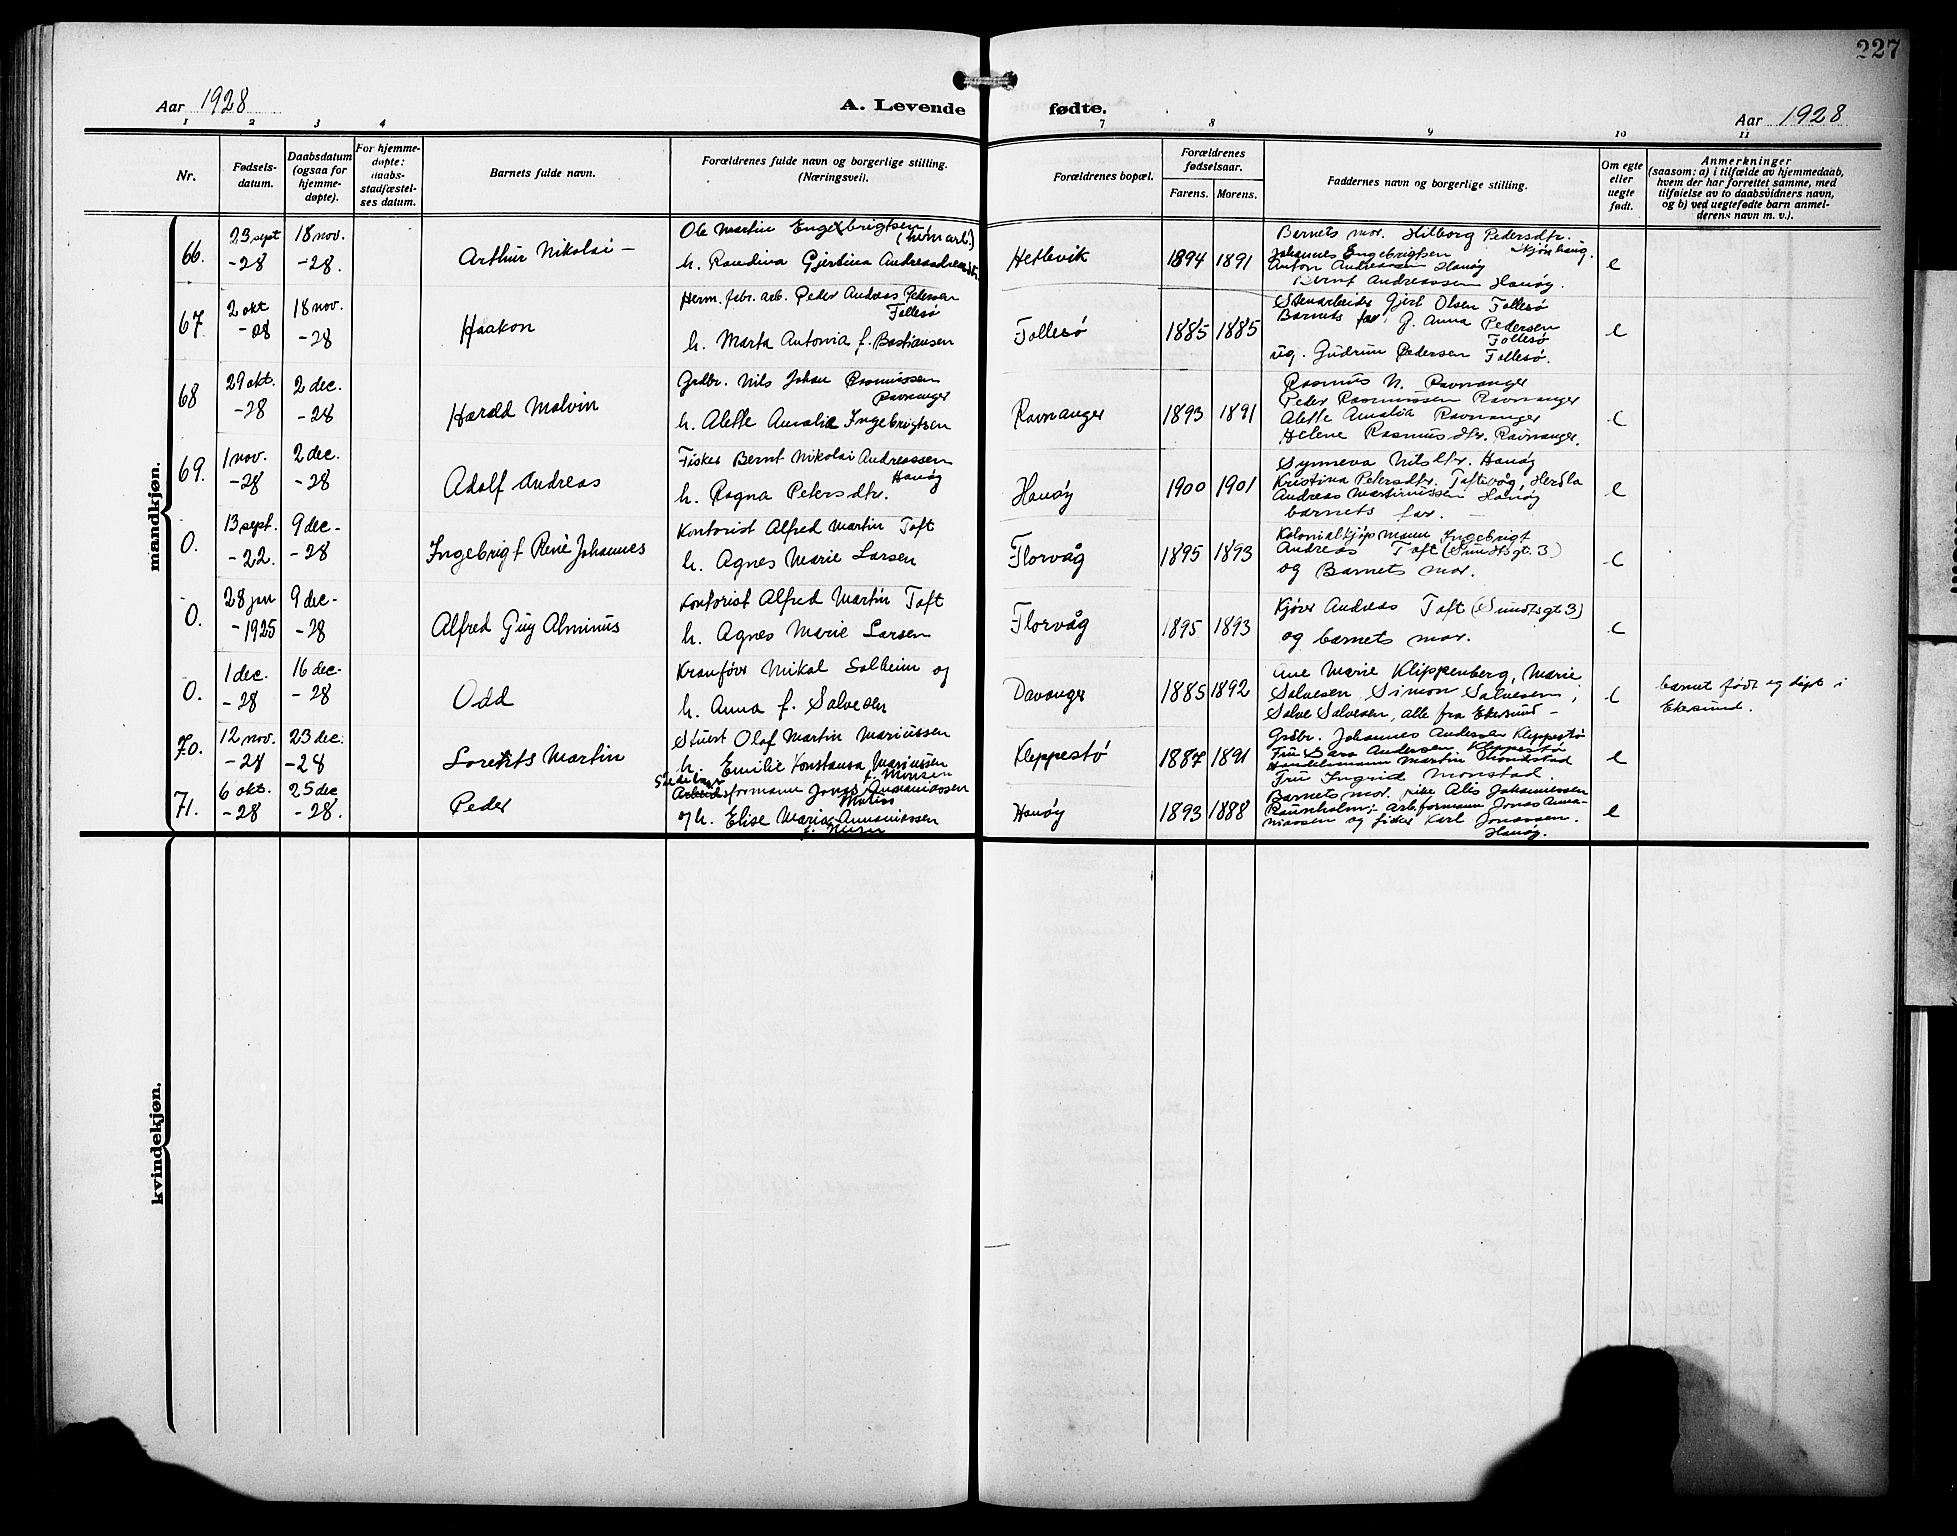 227
Aar 1928
A. Levende fødte.
Aar 1928
1 2 3 4 7 8 9 10 11
Nr.
Fødsels-
datum.
Daabsdatum
(ogsaa for
hjemme-
døpte).
For hjemme-
døpte:
daabs-
stadfæstel-
ses datum.
Barnets fulde navn.
Forældrenes fulde navn og borgerlige stilling.
(Næringsvei).
Forældrenes bopæl.
Forældrenes
fødselsaar.
Farens. Morens.
Faddernes navn og borgerlige stilling.
Om egte
eller
uegte
født.
Anmerkninger
(saasom: a) i tilfælde av hjemmedaab,
hvem der har forrettet samme, med
tilføielse av to daabsvidners navn,
og b) ved uegtefødte barn anmel-
derens navn m. v.).
mandkjøn.
66.
23 sept
-28
18 nov.
-28.
Arthur Nikolai -
Ole Martin Engebrigtsen
h. Randina Gjertina
Hetlevik
1894 1891
Barnets mor. Hilborg Pedersdtr.
Johannes Engebrigtsen
Anton Andreassen Hanøy
Bernt Andreassen Hanøy.
e
67
2 okt
-28
18 nov.
-28
Haakon
Herm. fabr. arb. Peder Andreas Pedersen
Follesø
h. Marta Antonia f. Bastiansen
Follesø
1885 1885
Stenarbeider Gjert Olsen Follesø
Barnets far, J. Anna Pedersen
Follesø
ug. Gudrun Pedersen Follesø.
e
68
29 okt.
-28
2 dec.
-28
Harald Malvin
Grdbr. Nils Johan Rasmussen
Ravnanger
h. Alette Amalie Ingebrigtsen
Ravnanger
1893 1891
Rasmus N. Ravnanger
Peder Rasmussen Ravnanger
Alette Amalia Ravnanger
Helene Rasmusdtr. Ravnanger.
e
69.
1 nov.
-28
2 dec.
-28
Adolf Andreas
Fisker Bernt Nikolai Andreassen
Hanøy
h. Ragna Petersdtr.
Hanøy
1900 1901
Synneva Nilsdtr. Hanøy
Kristina Petersdtr. Toftevåg, Herdla
Andreas Martinussen Hanøy
barnets far. -
e
0.
13 sept.
-22.
9 dec-
-28
Ingebrigt Renè Johannes
Kontorist Alfred Martin Toft
h. Agnes Marie Larsen
Florvåg
1895 1893
Kolonialkjøpmann Ingebrigt
Andreas Toft (Sundtsgt. 3)
og Barnets mor.
e
0.
28 jan
-1925
9 dec-
-28
Alfred Guy Alminus
Kontorist Alfred Martin Toft
h. Agnes Marie Larsen
Florvåg
1895 1893
Kjøbm Andreas Toft (Sundtsgt 3)
og barnets mor.
e
0.
1 dec.
-28
16 dec-
-28
Odd
Kranfører Mikal Solheim og
h. Anna f. Salvesen
Davanger
1885 1892
Ane Marie Klippenberg, Marie
Salvesen, Simon Salvesen,
Salve Salvesen, alle fra Ekersund -
e
barnet født og døpt i
Ekersund.
70.
12 nov.
-28
23 dec.
-28
Lorents Martin
Stuert Olaf Martin Mariussen
h. Emilie Konstansa Mariussen
f. Monsen
Kleppestø
1887 1891
Grdbr. Johannes Andersen Kleppestø
Fru Sara Andersen Kleppestø
Handelsmann Martin Monstad
Fru Ingrid Monstad.
e
71.
6 okt.
-28
25 dec
-28.
Peder
formann Jonas Annaniassen
og h. Elise Maria Annaniassen
Hanøy
1893 1888
Barnets mor, pike Alis Johannessen
Raunholm, arb.formann Jonas Anna-
niassen og fisker Karl Jonassen.
Hanøy.
e
kvindekjøn.